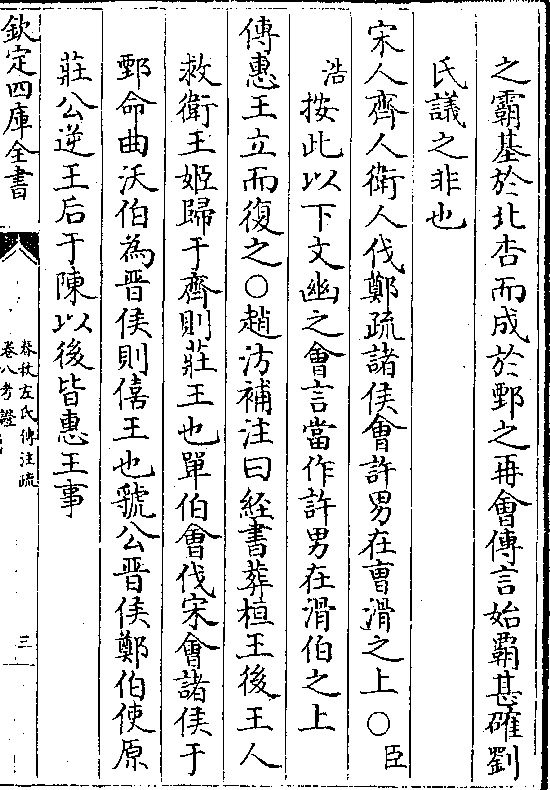 之霸基於北杏而成於鄄之再會傳言始霸甚確劉
氏議之非也
宋人齊人衛人伐鄭疏諸侯會許男在曹滑之上○臣
浩按此以下文幽之會言當作許男在滑伯之上
傳惠王立而復之○趙汸補注曰經書葬桓王後王人
救衛王姬歸于齊則莊王也單伯會伐宋會諸侯于
鄄命曲沃伯為晉侯則僖王也虢公晉侯鄭伯使原
莊公逆王后于陳以後皆惠王事
欽定四庫全書
春秋左氏傳注疏
卷八考證
三